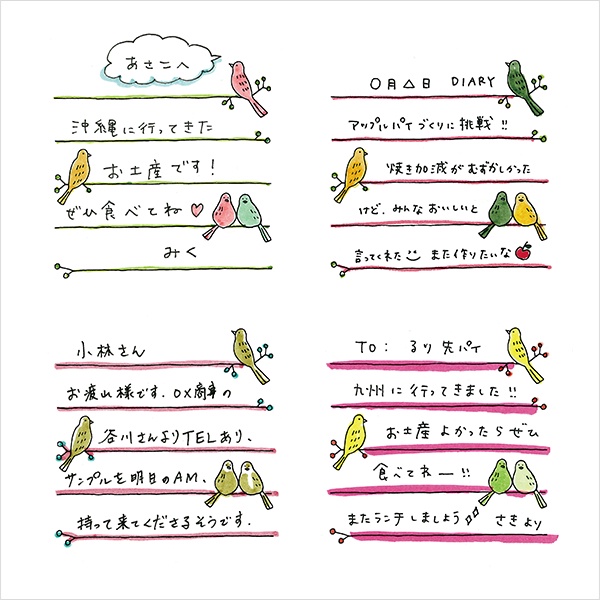 あさこへ
沖縄に行ってきた
お土産です!
ぜひ食べてね♡
みく
〇月△日 DIARY
アップルパイづくりに挑戦!!
焼き加減がむずかしかった
けど、みんなおいしいと
言ってくれた また作りたいな
小林さん
お疲れ様です。〇×商事の
谷川さんよりTELあり、
サンプルを明日のAM、
持って来てくださるそうです。
TO: るり先パイ
九州に行ってきました!!
お土産よかったらぜひ
食べてねー!!
またランチしましょう♪ さきより